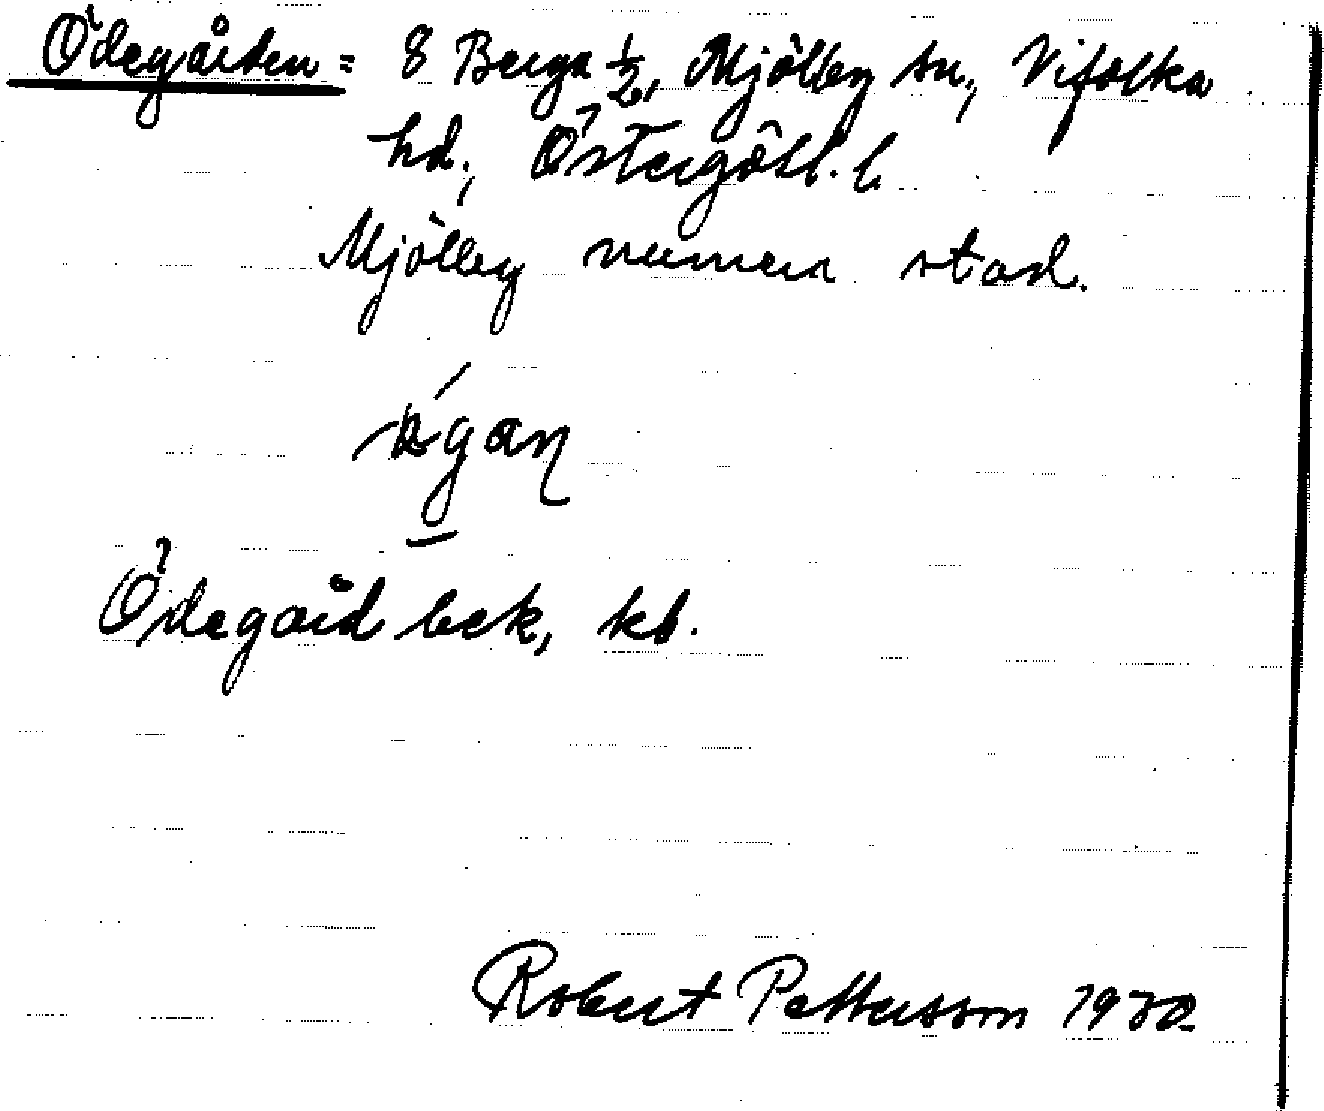 Ödegården = 8 Berga 1/2, Mjölby sn, Vifolka
hd., Östergötl. l.
Mjölby numera stad.
Ödegård bek, kb.
Robert Pettersson 1930